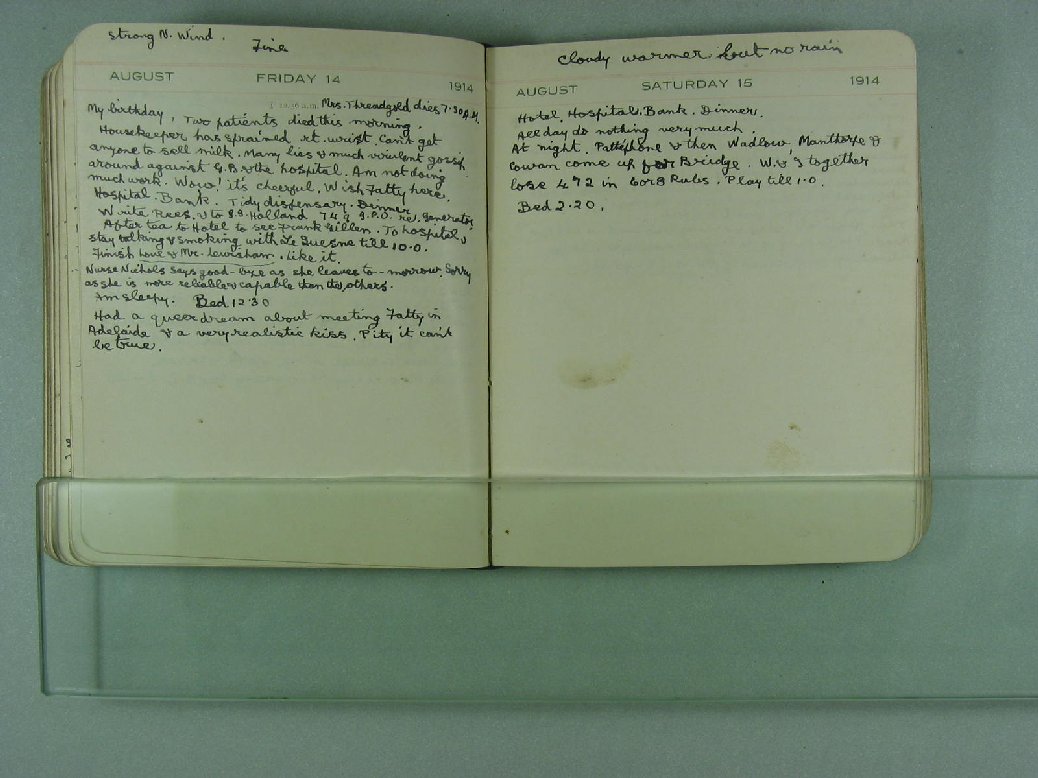 Strong N. Wind.
Fine
AUGUST FRIDAY 14 1914
Mrs. Threadgold dies 7.30 A.M.
My birthday, Two patients died this morning.
Housekeeper has sprained rt. wrist. Can't get
anyone to sell milk. Many lies & much virulent gossip
around against G.B & the hospital. Am not doing
much work. Wow! it's cheerful. Wish Fatty here.
Hospital. Bank. Tidy dispensary. Dinner
Write Rees. & to Holland G.P.O. re. Generator.
After tea to Hotel to see Frank Gillen. To hospital &
stay talking & smoking with Le Suesne till 10.0.
Finish Love & Mr. Lewisham. Like it.
Nurse Nichols says good-bye as she leaves to-morrow. Sorry
as she is more reliable & capable than the others.
Am sleepy. Bed 12.30
Had a queer dream about meeting Fatty in
Adelaide & a very realistic kiss. Pity it can't
be true.
Cloudy warmer but no rain
AUGUST SATURDAY 15 1914
Hotel. Hospital. Bank. Dinner.
All day do nothing very much.
At night. Pathephone & then Wadlow, Manthorpe &
Cowan come up for Bridge. W. & I together
lose 472 in 6 or 8 Rubs. Play till 1.0.
Bed 2.20.